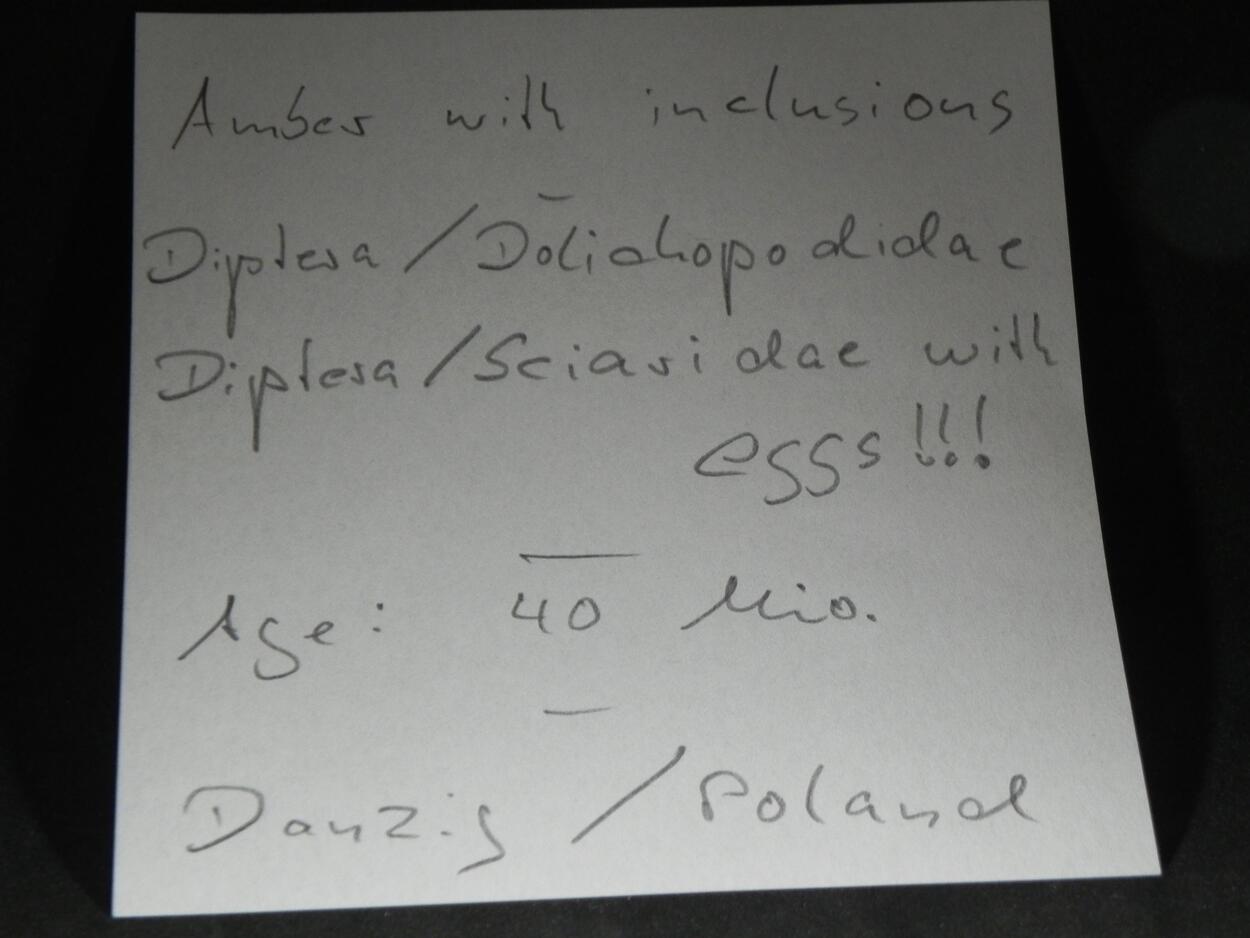 Amber with inclusions
Diptera / Dolichopodidae
Diptera / Sciaridae with
eggs !!!
Age: 40 Mio.
Danzig / Poland